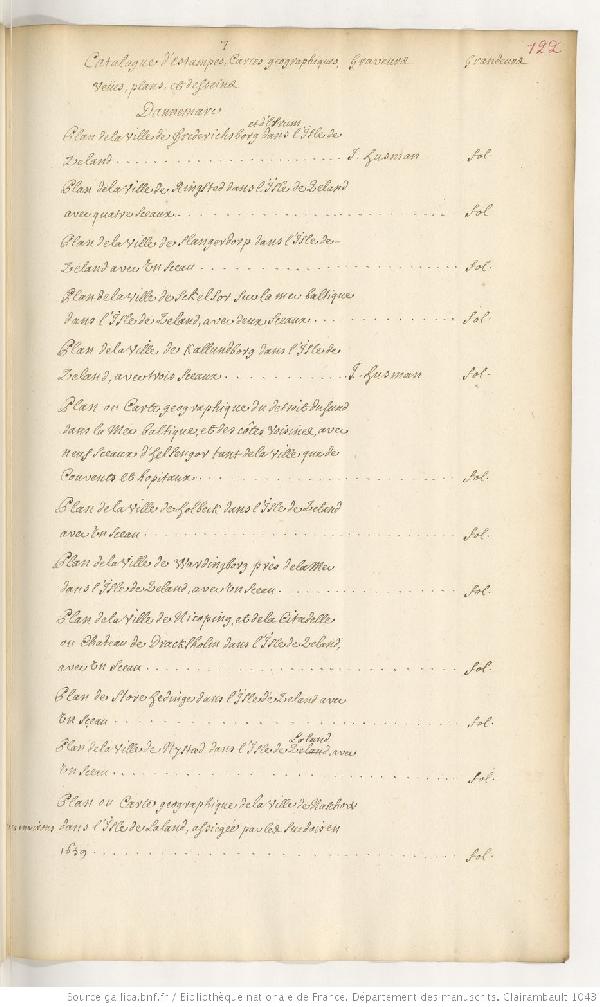 7
122
Catalogue d'Estampes, Cartes geographiques, Graveurs Grandeurs
Veües, plans, et desseins
Dannemarc
Plan de la Ville de Frederichsborg dans l'Isle de
Zeland . . . . . . J. Husman fol.
Plan de la Ville de Ringsted dans l'Isle de Zeland
avec quatre Sceaux . . . . . . fol
Plan de la Ville de Slangerdorp dans l'Isle de
Zeland avec Un Sceau . . . . . . fol.
Plan de la Ville de Schelsor sur la mer baltique
dans l'Isle de Zeland, avec deux Sceaux . . . . . . fol.
Plan de la Ville de Kallundborg dans l'Isle de
Zeland, avec trois Sceaux . . . . . . J. Husman fol.
Plan ou Carte geographique du detroit du Sund
dans la Mer baltique, et des côtes Voisines, avec
neuf Sceaux d'Helsengor tant de la Ville que de
Couvents et hopitaux . . . . . . fol.
Plan de la Ville de Holbeck dans l'Isle de Zeland
avec Un Sceau . . . . . . fol.
Plan de la Ville de Wardingborg près de la Mer
dans l'Isle de Zeland, avec Un Sceau . . . . . . fol.
Plan de la Ville de Nicoping, et de la Citadelle
ou Chateau de Dracksholm dans l'Isle de Zeland,
avec Un Sceau . . . . . . fol.
Plan de Store Hedinge dans l'Isle de Zeland avec
Un Sceau . . . . . . fol.
Laland
Plan de la Ville de Nysted dans l'Isle de Zeland, avec
Un Sceau . . . . . . fol.
Plan ou Carte geographique de la Ville de
environs dans l'Isle de Laland, assiegée par les Suedois en
1659 . . . . . . fol.
Source gallica.bnf.fr / Bibliothèque nationale de France. Département des manuscrits. Clairambault 1043